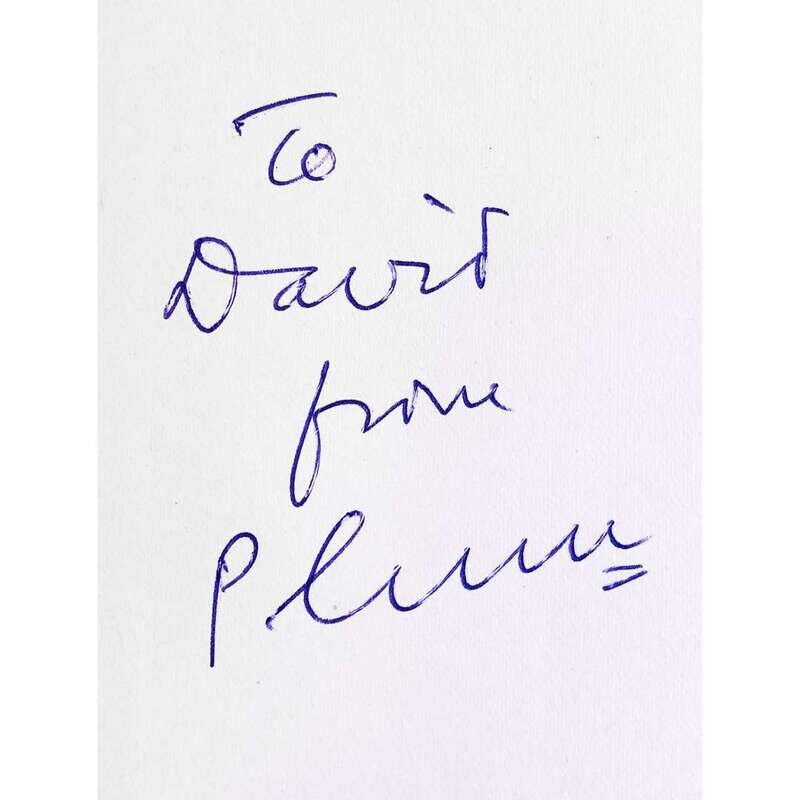 To
David
from
Plum